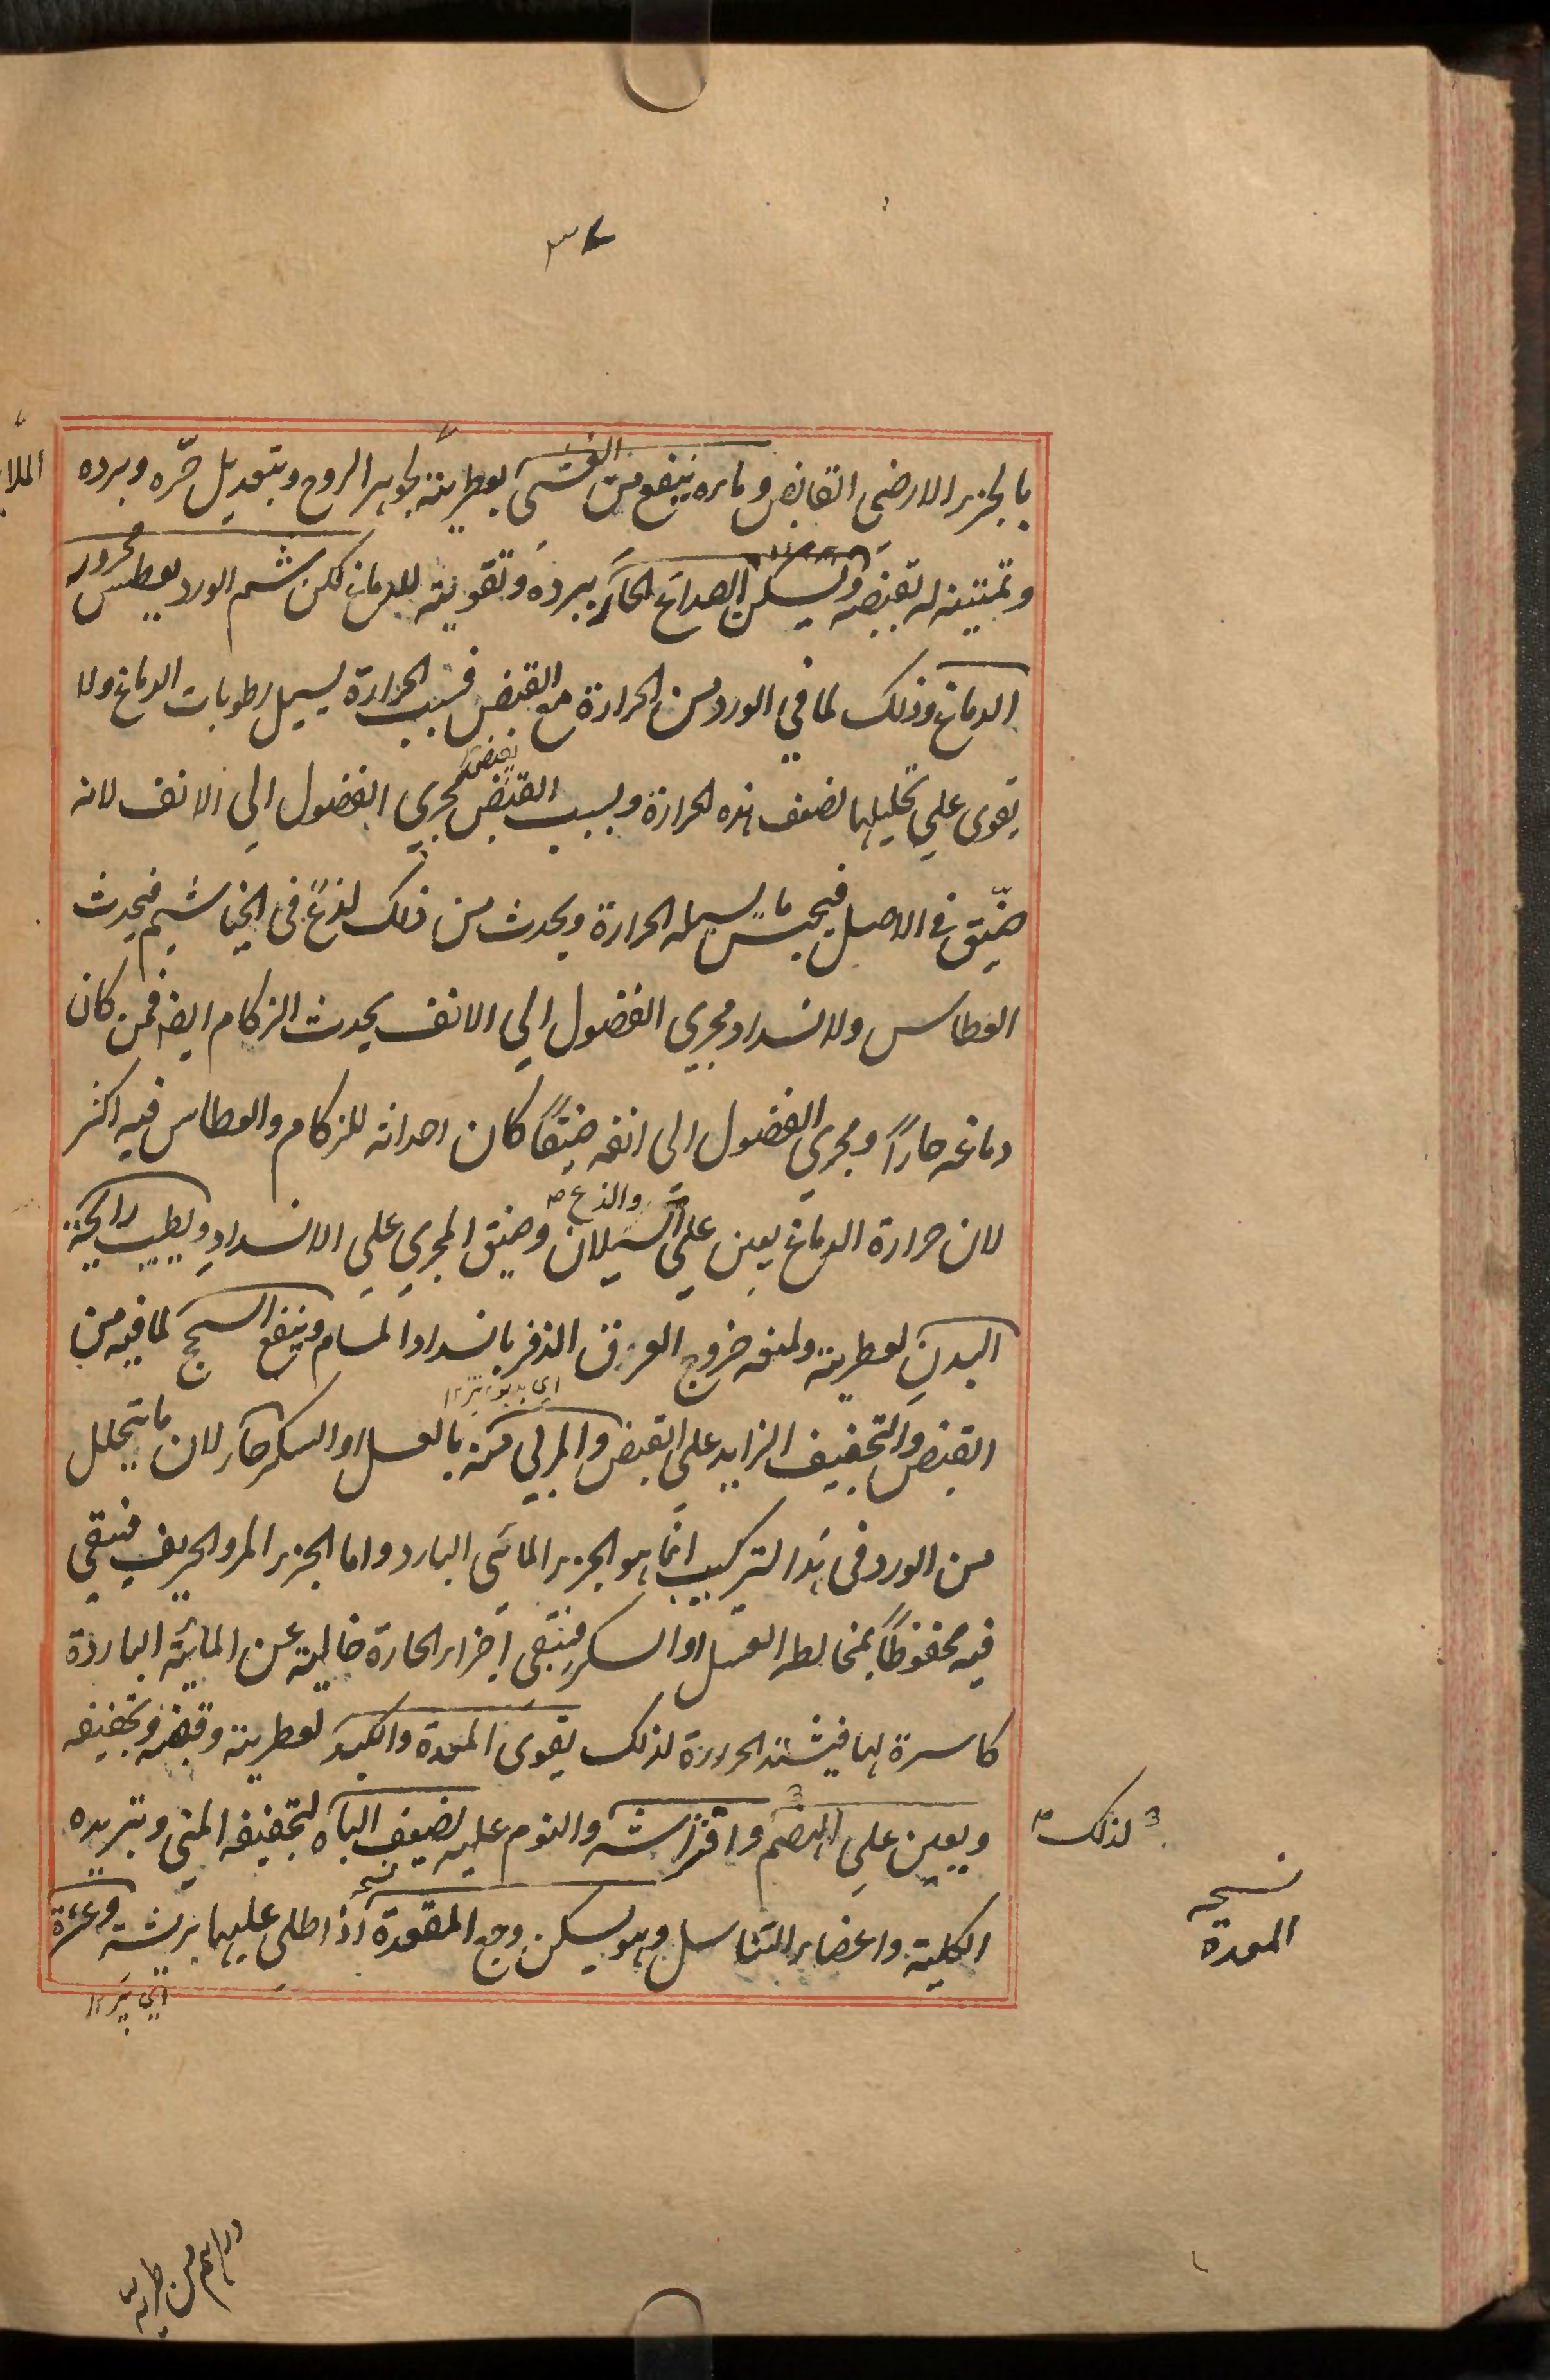 ٣٧
بالجزء الارضى القابض وماءه ينفع من الغشى بعطريته لجوهر الروح وبتعديل حرّه وبرده
وتمتينه له بقبضه ويسكن الصداع الحار ببرده وتقويته للدماغ لكن شم الورد يعطس محرور
الدماغ وذلك لما في الورد من الحرارة مع القبض فبسبب الحرارة يسيل رطوبات الدماغ ولا
يقوى على تحليلها لضعف هذه الحرارة وبسبب القبض يقبض مجرى الفضول الى الانف لانه
ضيّق في الاصل فيحبس ما يسيله الحرارة ويحدث من ذلك لذعٌ في الخياشيم فيحدث
العطاس ولانسداد مجرى الفضول الى الانف يحدث الزكام ايضا فمن كان
دماغه حارًا ومجرى الفضول الى انفه ضيقًا كان احداثه للزكام والعطاس فيه اكثر
لان حرارة الدماغ يعين على السيلان والذع وضيق المجرى على الانسداد ويطيب رايحة
البدن لعطريته ولمنعه خروج العرق الذفر بانسداد المسام وينفع السحج لما فيه من
اى بدبو تيز ١٢
القبض والتجفيف الزايد على القبض والمربى منه بالعسل او السكر حار لان ما يتحلل
من الورد في هذا التركيب انما هو الجزء المائى البارد واما الجزء المر والحريف فيبقى
فيه محفوظًا بمخالطه العسل او السكر فيبقى اجزاء الحارة خالية عن المائية الباردة
كاسرة لها فيشتد الحرارة لذلك يقوى المعدة والكبد لعطريته وقبضه وتجفيفه
ويعين على الهضم وافتراشه والنوم عليه يضعف الباه لتجفيفه المنى وتبريده
لذلك
الكلية واعضاء التناسل وهو يسكن وجع المقعدة اذا طلى عليها بريشة وعثرة
نسخه
المعدة
اى تيز ١٢